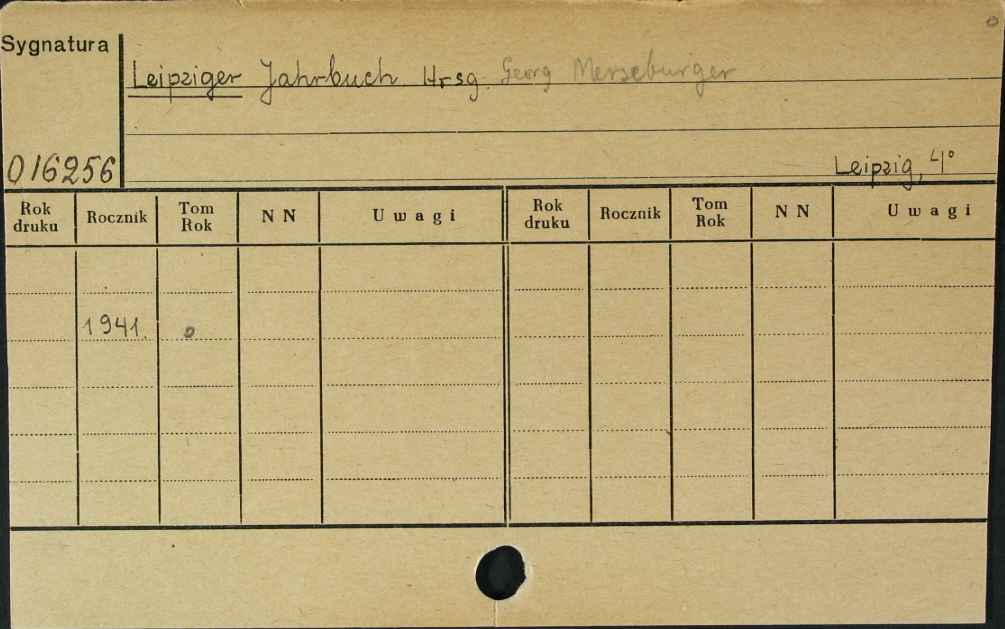 o
Sygnatura
Leipziger Jahrbuch. Hrsg. Georg Merseburger
016256
Leipzig, 4°
Rok druku Rocznik Tom Rok N N Uwagi Rok druku Rocznik Tom Rok N N Uwagi
1941. o